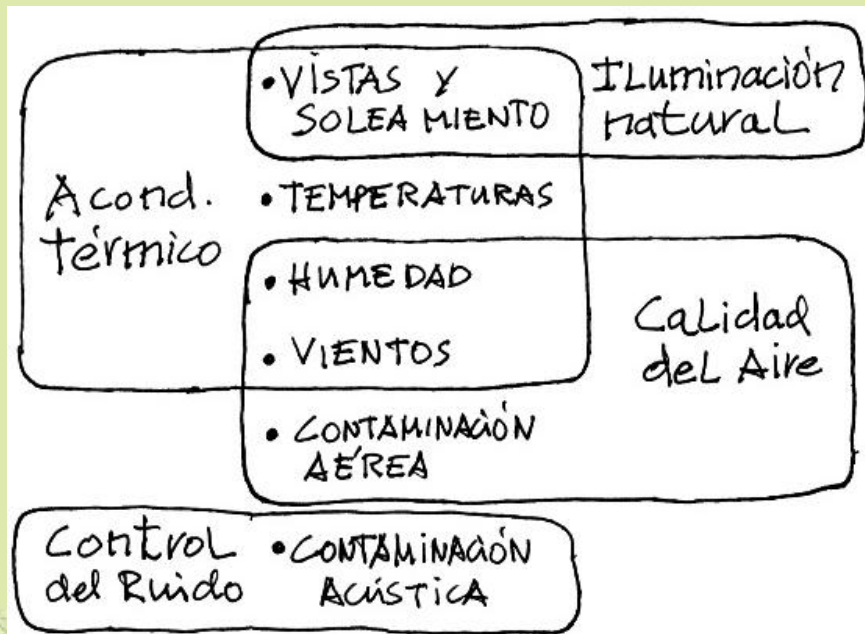 • VISTAS Y
SOLEAMIENTO
ILuminación
naturaL
Acond.
térmico
• TEMPERATURAS
• HUMEDAD
• VIENTOS
CaLidad
deL Aire
• CONTAMINACIÓN
AÉREA
ControL
del Ruido
• CONTAMINACIÓN
ACÚSTICA